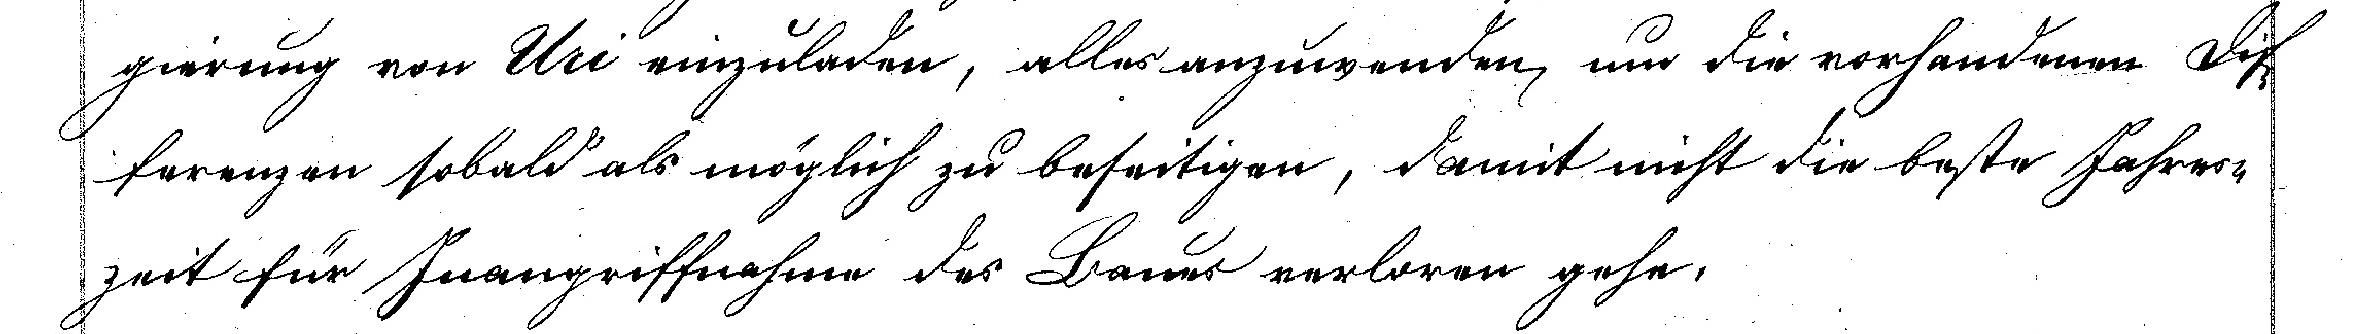 gierung von Uri einzuladen, alles anzuwenden, um die vorhandenen Dif-
ferenzen sobald als möglich zu beseitigen, damit nicht die beste Jahres-
zeit für Inangriffnahme des Baues verloren gehe.